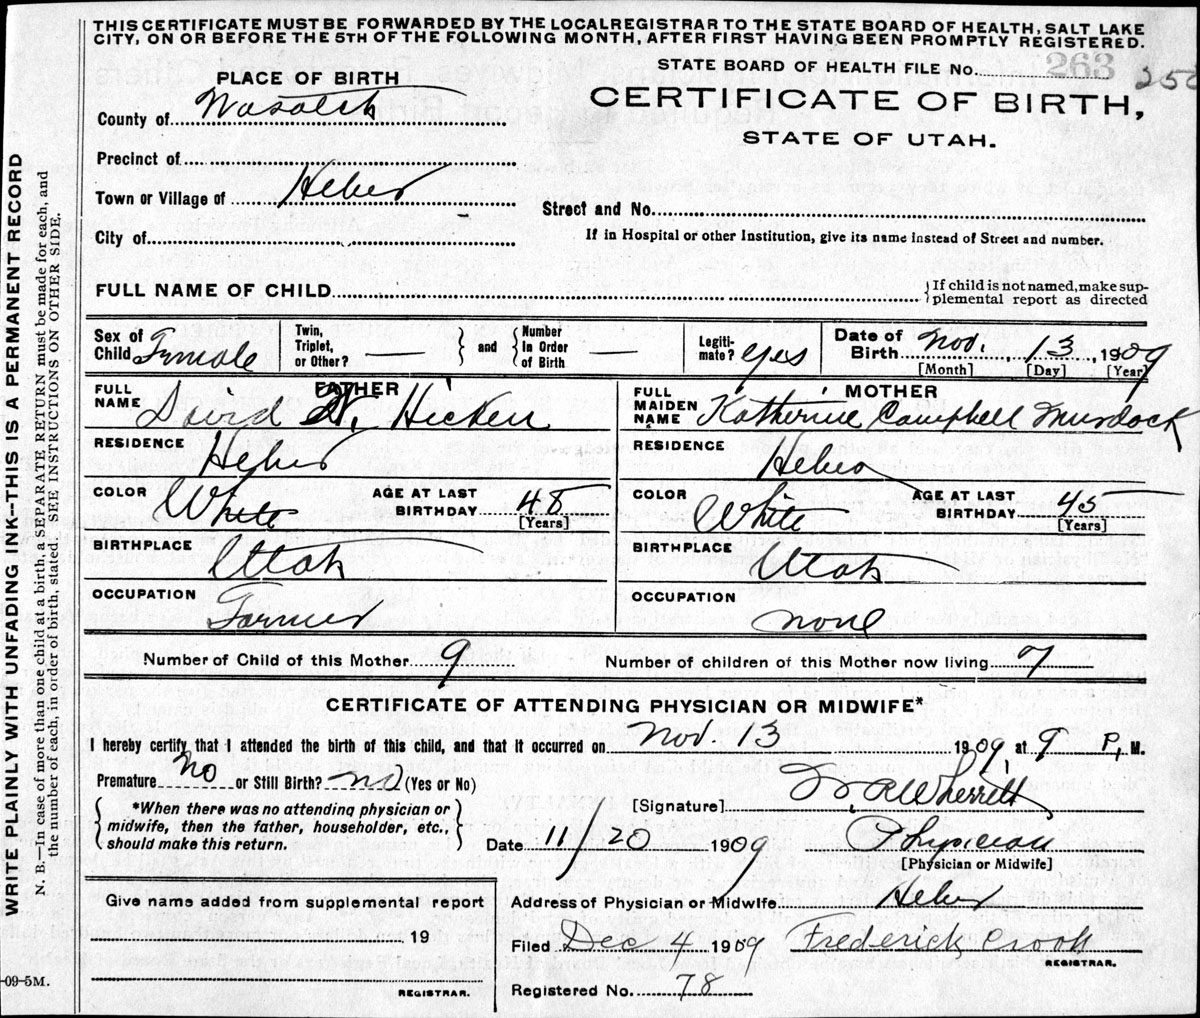 THIS CERTIFICATE MUST BE FORWARDED BY THE LOCAL REGISTRAR TO THE STATE BOARD OF HEALTH, SALT LAKE
CITY, ON OR BEFORE THE 5TH OF THE FOLLOWING MONTH, AFTER FIRST HAVING BEEN PROMPTLY REGISTERED.
STATE BOARD OF HEALTH FILE No. 263
PLACE OF BIRTH
CERTIFICATE OF BIRTH,
STATE OF UTAH.
County of Wasatch
Precinct of
Town or Village of Heber
City of
Street and No.
If in Hospital or other Institution, give its name instead of Street and number.
FULL NAME OF CHILD
{If child is not named, make sup-
plemental report as directed
Sex of Child Female
Twin, Triplet, or Other? —
and
Number In Order of Birth —
Legiti-mate? yes
Date of Birth Nov. 13, 1909
[Month] [Day] [Year]
FATHER
FULL NAME David Hicken
RESIDENCE Heber
COLOR White
AGE AT LAST BIRTHDAY 48
[Years]
BIRTHPLACE Utah
OCCUPATION Farmer
MOTHER
FULL MAIDEN NAME Katherine Campbell Murdock
RESIDENCE Heber
COLOR White
AGE AT LAST BIRTHDAY 45
[Years]
BIRTHPLACE Utah
OCCUPATION none
Number of Child of this Mother 9 Number of children of this Mother now living 7
CERTIFICATE OF ATTENDING PHYSICIAN OR MIDWIFE*
I hereby certify that I attended the birth of this child, and that it occurred on Nov. 13 1909, at 9 P. M.
Premature no or Still Birth? no (Yes or No)
*When there was no attending physician or
midwife, then the father, householder, etc.,
should make this return.
[Signature] Wherritt
Date 11/20 1909 Physician
[Physician or Midwife]
Give name added from supplemental report
19
REGISTRAR.
Address of Physician or Midwife Heber
Filed Dec 4 1909 Frederick Crook
REGISTRAR.
Registered No. 78
WRITE PLAINLY WITH UNFADING INK—THIS IS A PERMANENT RECORD
N. B.—In case of more than one child at a birth, a SEPARATE RETURN must be made for each, and
the number of each, in order of birth, stated. SEE INSTRUCTIONS ON OTHER SIDE.
-09-5M.